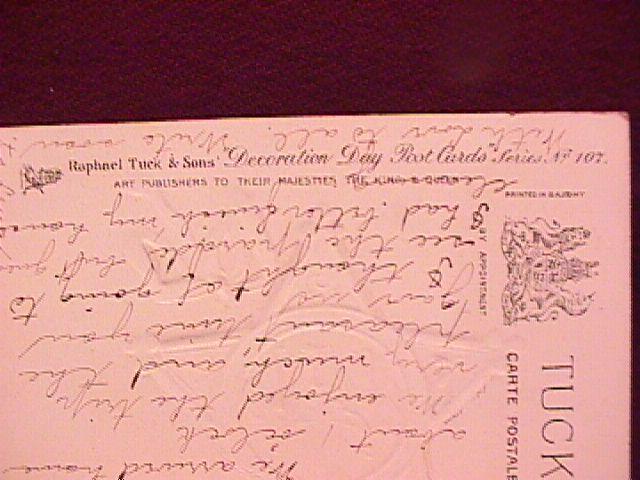 Raphael Tuck & Sons' "Decoration Day Post Cards" Series. Nº 107.
ART PUBLISHERS TO THEIR MAJESTIES THE KING & QUEEN
PRINTED IN SAXONY
BY APPOINTMENT
TUCK
CARTE POSTALE
We arrived home
about 1 o'clock
We enjoyed the trip
very much and the
pleasant time you
gave us
thought of going to
see the parade but guess
had better finish my house
With love to all. Write soon